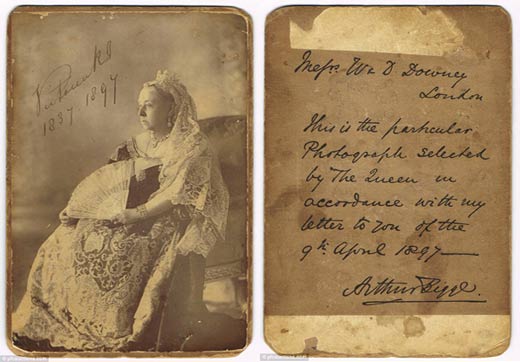 1837. 1897
Messrs. W & D Downey
London
This is the particular
Photograph selected
by The Queen in
accordance with my
letter to you of the
9th April 1897—
Arthur Bigge.